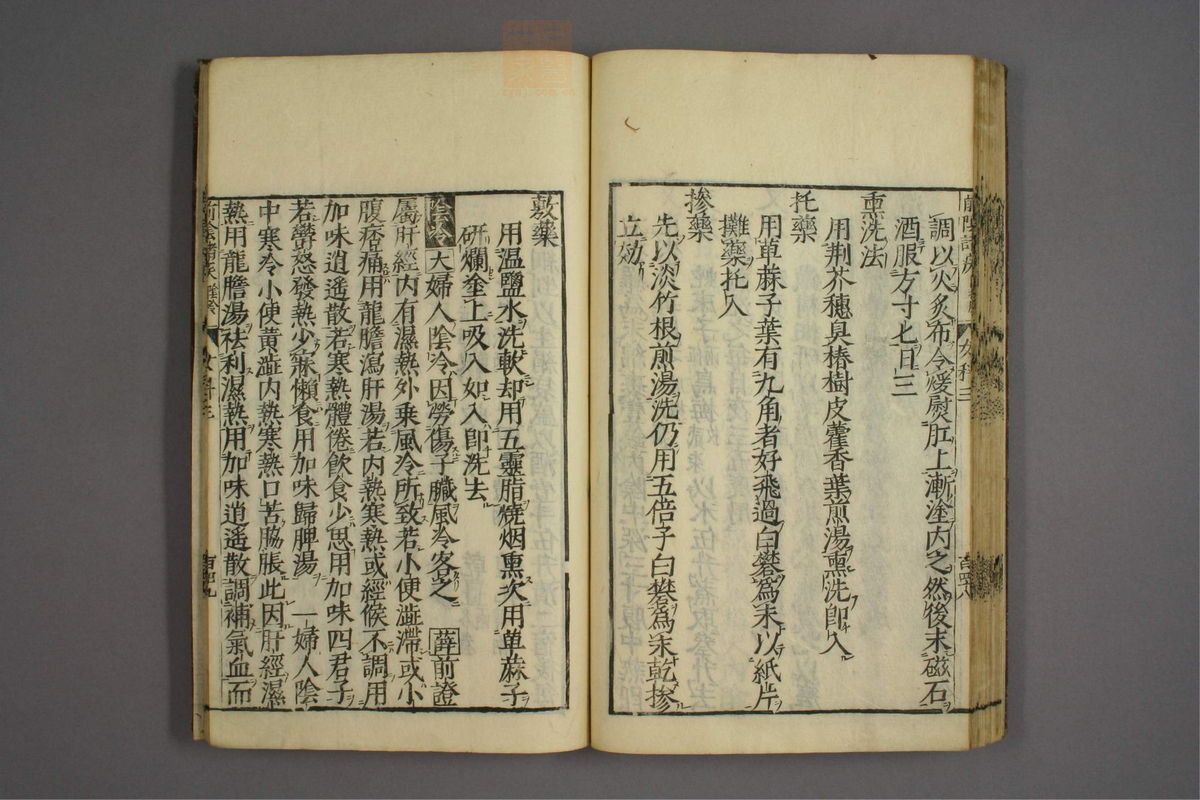 調以火炙布令煖熨肛上漸塗内之然後末磁石
酒服方寸匕日三
熏洗法
用荆芥穗臭椿樹皮藿香葉煎湯熏洗即入
托藥
用草蔴子葉有九角者好飛過白礬為末以紙片
攤藥托入
摻藥
先以淡竹根煎湯洗仍用五倍子白礬為末乾摻
立効
敷藥
用温鹽水洗軟却用五靈脂燒烟熏次用草蔴子
研爛塗上吸入如入即洗去
陰冷 大婦人陰冷因勞傷子臟風冷客之 薛前證
屬肝經内有濕熱外乗風冷所致若小便澁滯或小
腹痞痛用龍膽瀉肝湯若内熱寒熱或經候不調用
加味逍遥散若寒熱體倦飲食少思用加味四君子
若鬱怒發熱少寐懶食用加味歸脾湯 一婦人陰
中寒冷小便黄澁内熱寒熱口苦脇脹此因肝經濕
熱用龍膽湯祛利濕熱用加味逍遥散調補氣血而